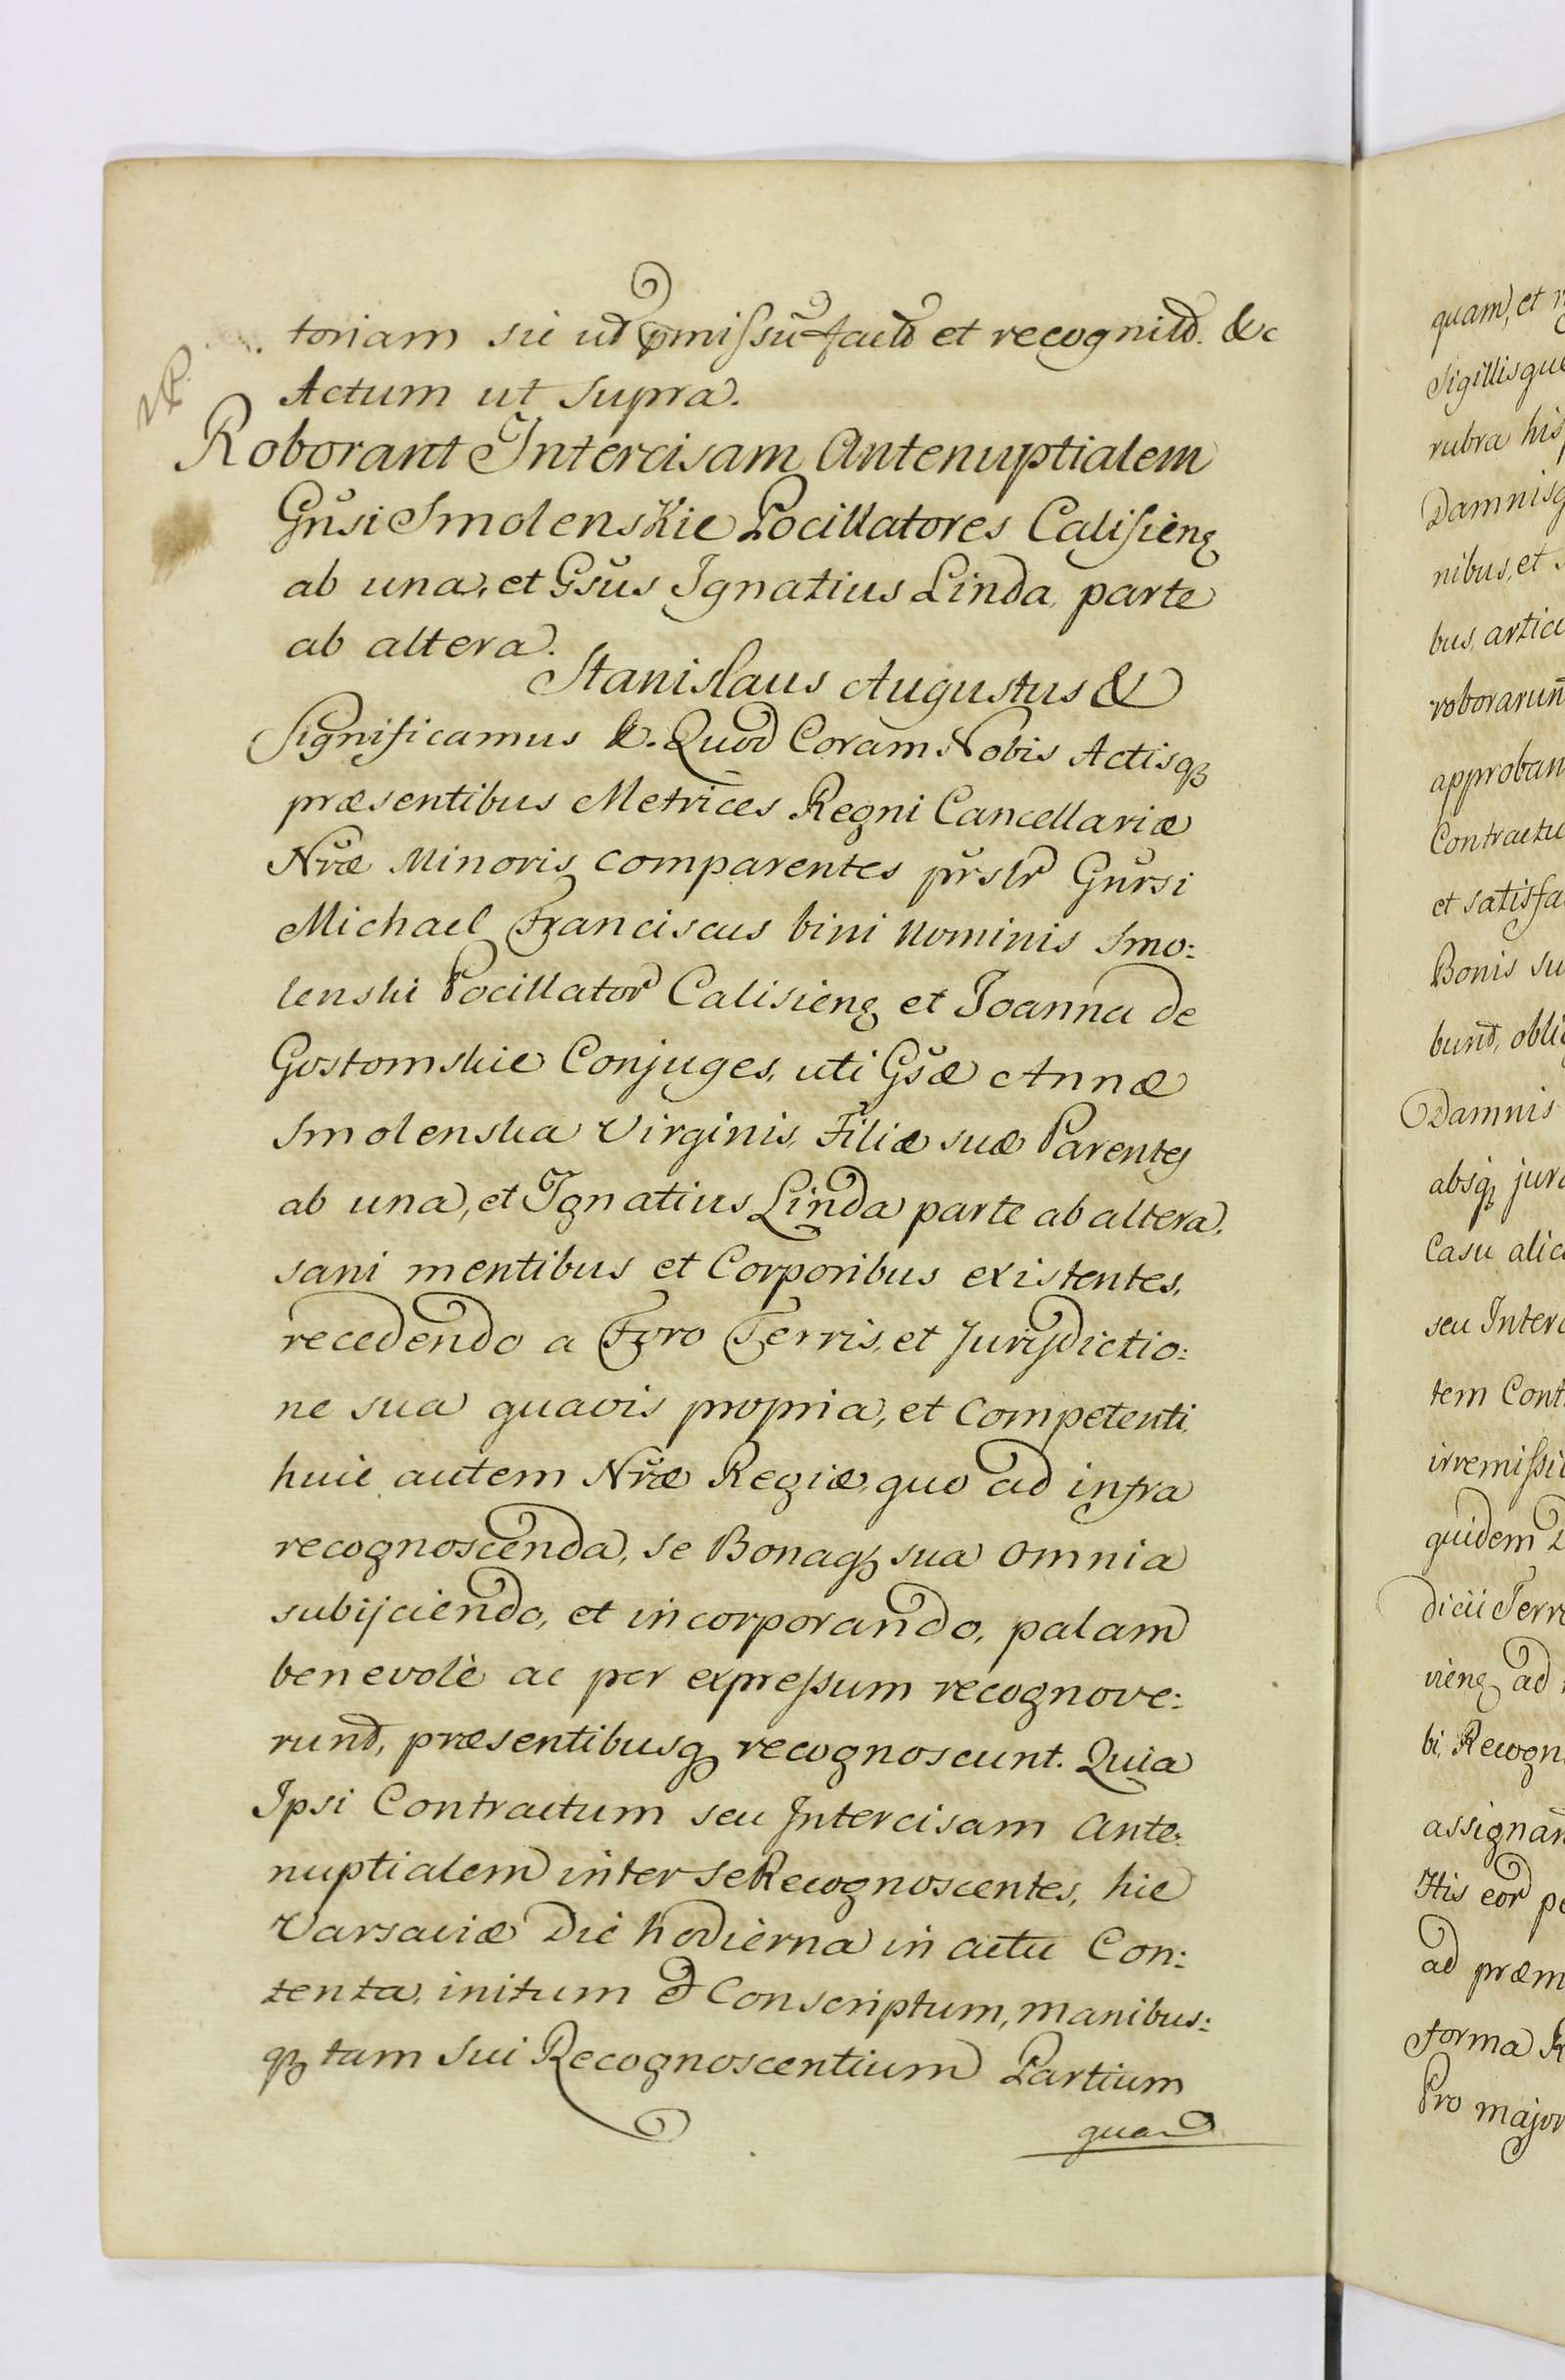 toriam sic ut pmissũ facto et recognito. &c
Actum ut supra.
Roborant Intercisam Antenuptialem
Gñsi Smolenskie Pocillatores Calisieng
ab una, et Gsũs Ignatius Linda parte
ab altera.
Stanislaus Augustus &
Significamus &. Quod Coram Nobis Actisq3
præsentibus Metrices Regni Cancellariæ
Nr̃æ Minoris comparentes pr̃slr Gñrsi
Michael Franciscus bini nominis Smo:
lenski Pocillator Calisieng et Joanna de
Gostomskie Conjuges, uti Gsæ Annæ
Smolenska Virginis, Filiæ suæ Parentes
ab una, et Ignatius Linda parte ab altera,
sani mentibus et Corporibus existentes,
recedendo a Foro Terris, et Jurisdictio:
ne sua quavis propria, et Competenti,
huic autem Nr̃æ Regiæ, quo ad infra
recognoscenda, se Bonaq3 sua omnia
subijciendo, et incorporando, palam
benevolè ac per expressum recognove:
runt, præsentibusq3 recognoscunt. Quia
Ipsi Contractum seu Intercisam Ante:
nuptialem inter se Recognoscentes, hic
Varsaviæ Die hodierna in actu Con:
tenta, initum et Conscriptum, manibus:
q3 tam sui Recognoscentium Partium
quam
quam, et
Sigillisque
rubra his
Damnisq
nibus, et
bus, artic
roborarunt
approban
Contractu
et satisfa
Bonis su
bunt, obli
Damnis
absq3 jur
Casu alic
seu Interc
tem Cont
irremissi
quidem
dicii Terr
vieng ad
bi, Recogn
assignan
His eor p
ad præm
forma R
Pro major